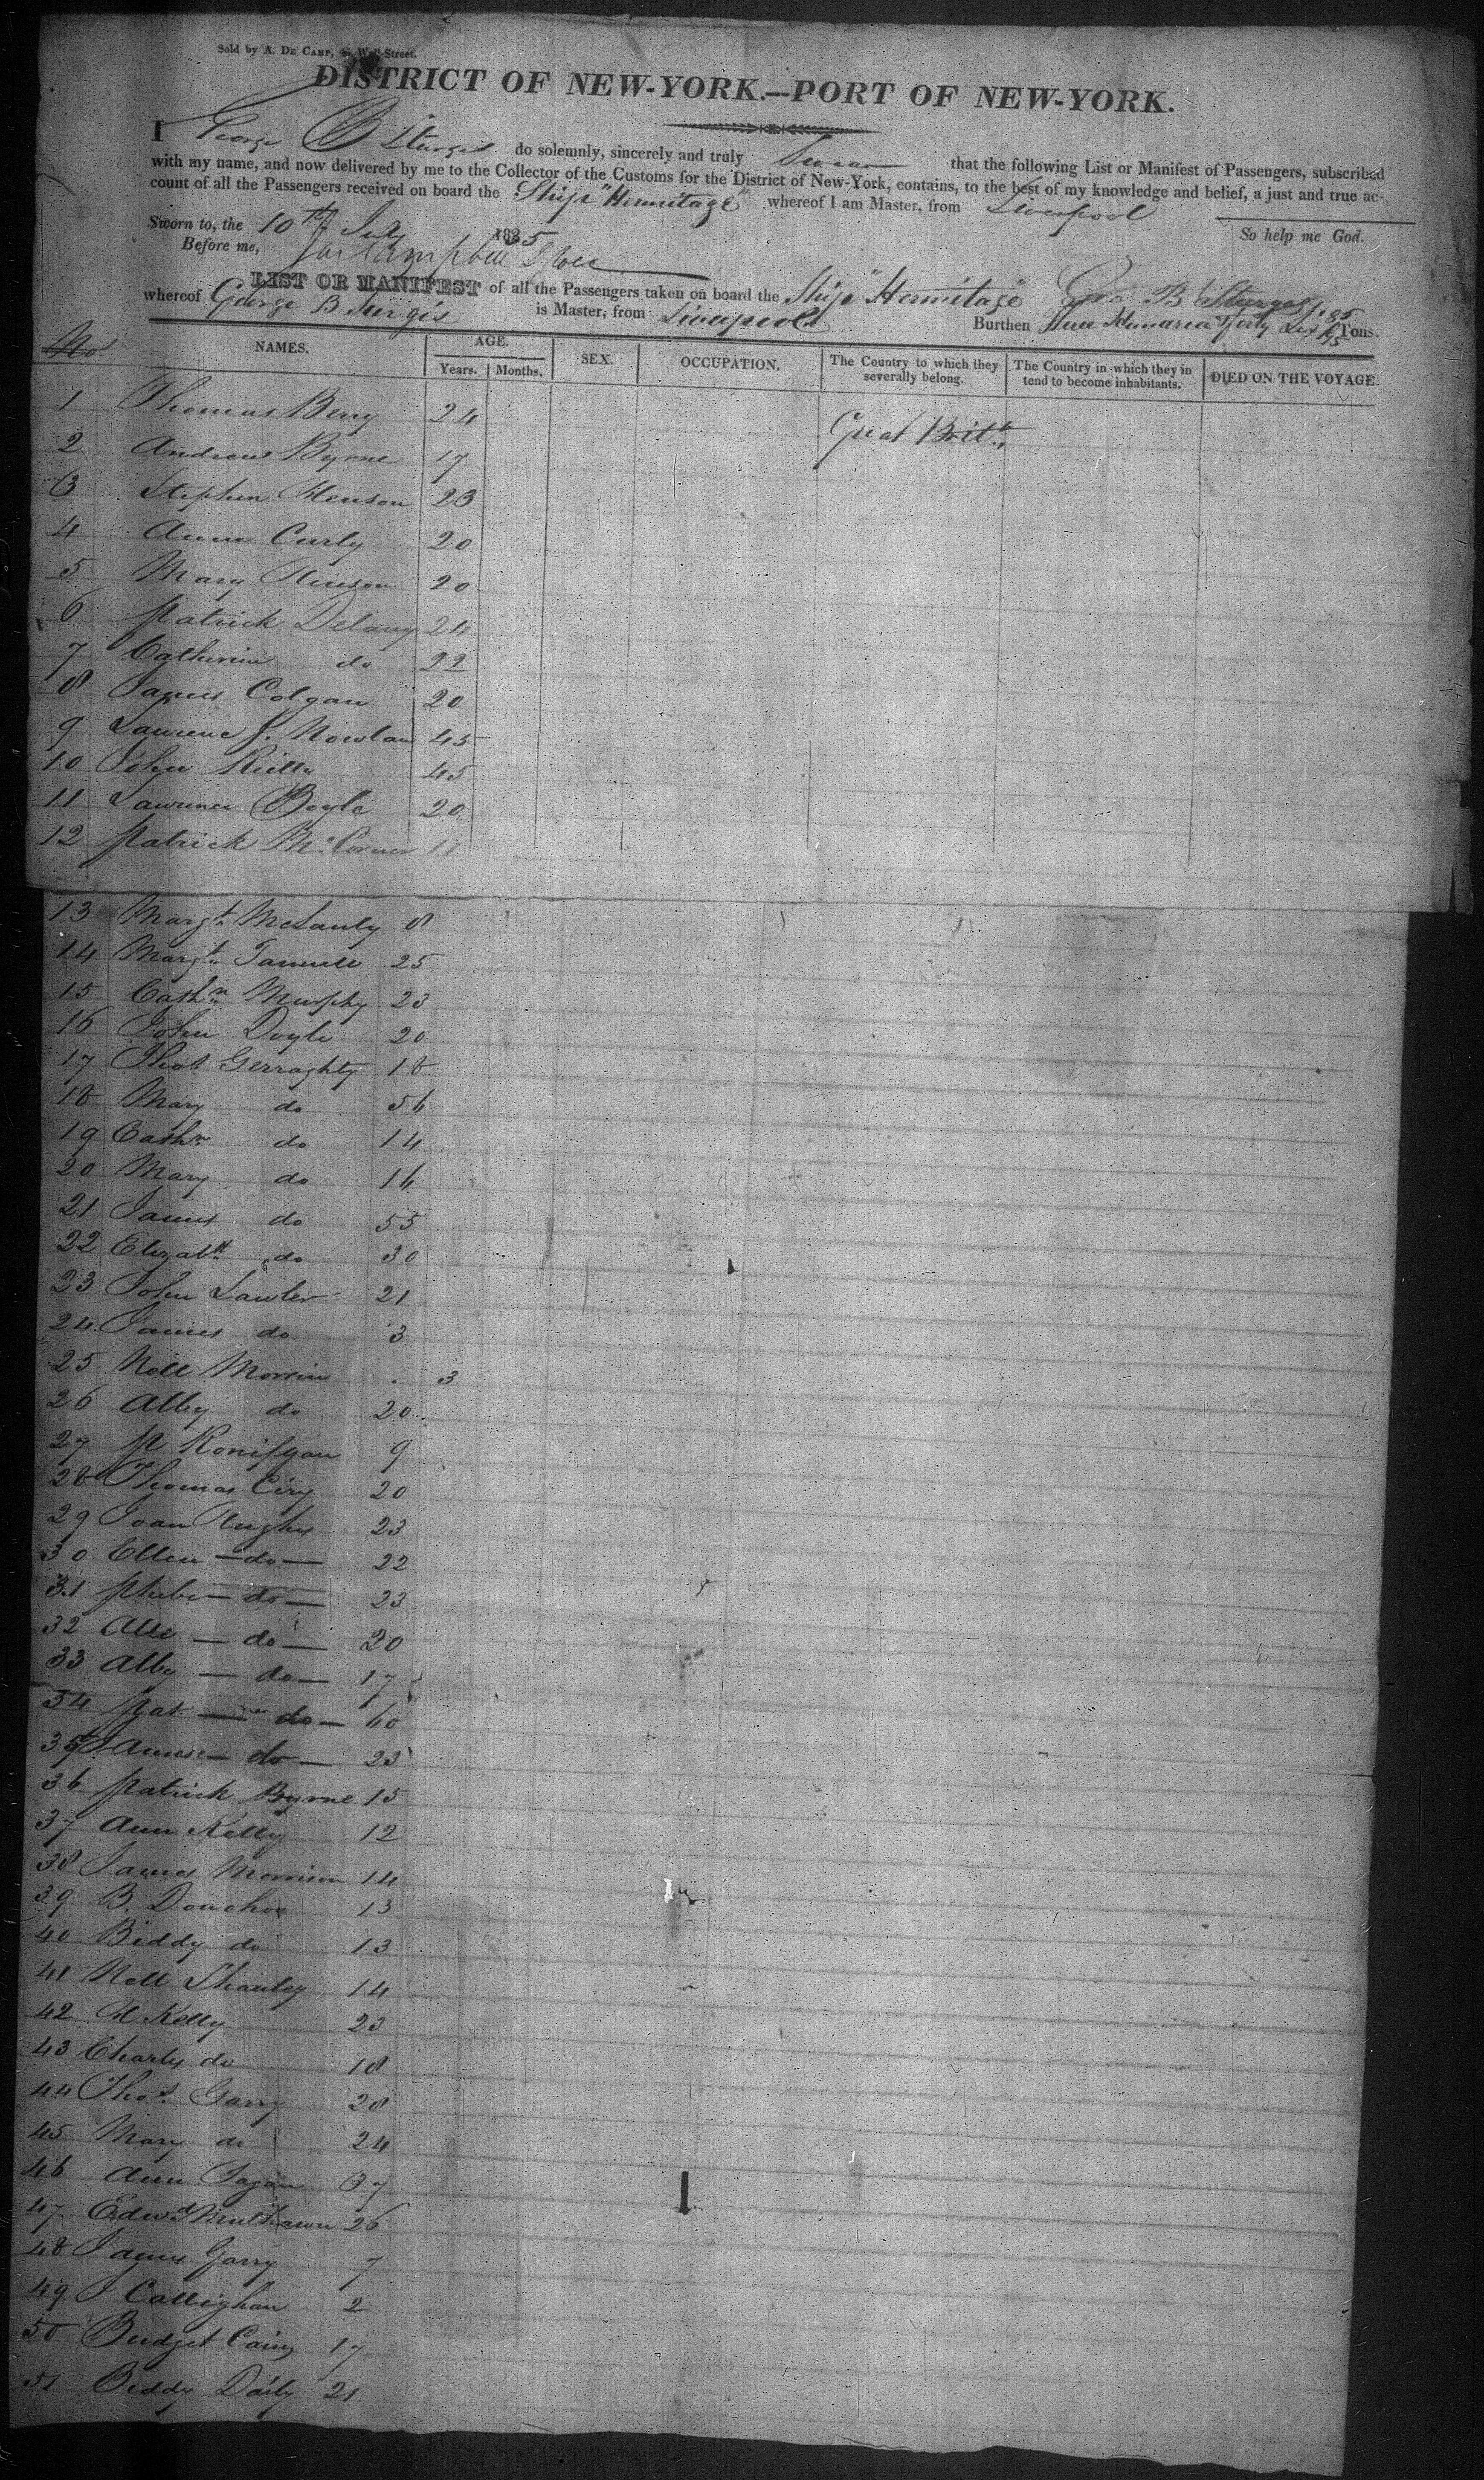 Sold by A. De Camp, Wall-Street.
DISTRICT OF NEW-YORK.—PORT OF NEW-YORK.
I George B Sturges do solemnly, sincerely and truly Swear that the following List or Manifest of Passengers, subscribed
with my name, and now delivered by me to the Collector of the Customs for the District of New-York, contains, to the best of my knowledge and belief, a just and true ac-
count of all the Passengers received on board the Ship "Hermitage" whereof I am Master, from Liverpool
Sworn to, the 10th July 1835 So help me God.
Before me, Campbell
LIST OR MANIFEST of all the Passengers taken on board the Ship "Hermitage" Geo B Sturges
whereof George B Sturgis is Master, from Liverpool Burthen Three Hundred Tons.
No. NAMES. AGE. Years. Months. SEX. OCCUPATION. The Country to which they severally belong. The Country in which they intend to become inhabitants. DIED ON THE VOYAGE.
1 Thomas Berry 24 Great Brit.
2 Andrew Byrne 17
3 Stephen Henson 23
4 Anne Curly 20
5 Mary Henson 20
6 Patrick Delany 24
7 Catherine do 22
8 James Colgan 20
9 Laurence J. Nowlan 45
10 John Rielly 45
11 Lawrence Boyle 20
12 Patrick 11
13 Margt. 8
14 Margt. 25
15 Cathn. Murphy 23
16 John Doyle 20
17 Thos Gerraghty 18
18 Mary do 56
19 Cathn do 14
20 Mary do 16
21 James do 55
22 Elizabth do 30
23 John Lawler 21
24 James do 3
25 Nell Morrin 3
26 Alby do 20
27 P 9
28 Thomas 20
29 Joan Hughes 23
30 Ellen — do — 22
31 Phebe — do — 23
32 — do — 20
33 Alby — do — 17
34 Pat — do — 60
35 James — do — 23
36 Patrick Byrne 15
37 Ann Kelly 12
38 James Morrison 14
39 B. Donohoe 13
40 Biddy do 13
41 Nell Shanley 14
42 Kelly 23
43 Charles do 18
44 Thos. Garry 28
45 Mary do 24
46 Ann Fagan 37
47 Edwd 26
48 James Garry 7
49 J Callighan 2
50 Bridget 17
51 Biddy Daily 21